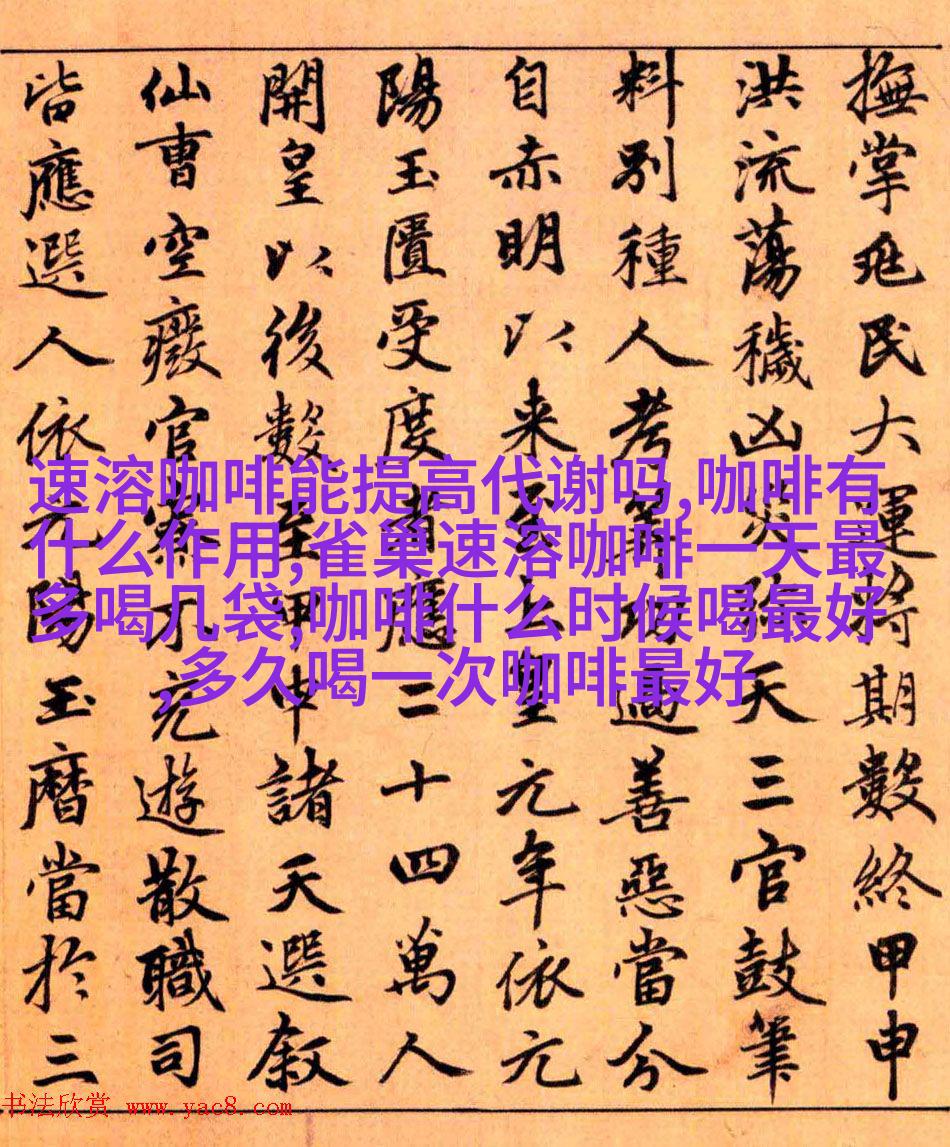 撫掌兆民大運将期數終甲申
洪流蕩穢凶災天三官鼓筆
料別種人考筭功過善惡當分
自赤明以来至上皇元年依元
陽玉匱受度者應二十四萬人
開皇以後數至甲申諸天選叙
仙曹空廢官僚不充遊散職司
皆應選人依元陽玉曆當於三
速溶咖啡能提高代谢吗,咖啡有
什么作用,雀巢速溶咖啡一天最
多喝几袋,咖啡什么时候喝最好
,多久喝一次咖啡最好
书法欣赏 www.yac8.com